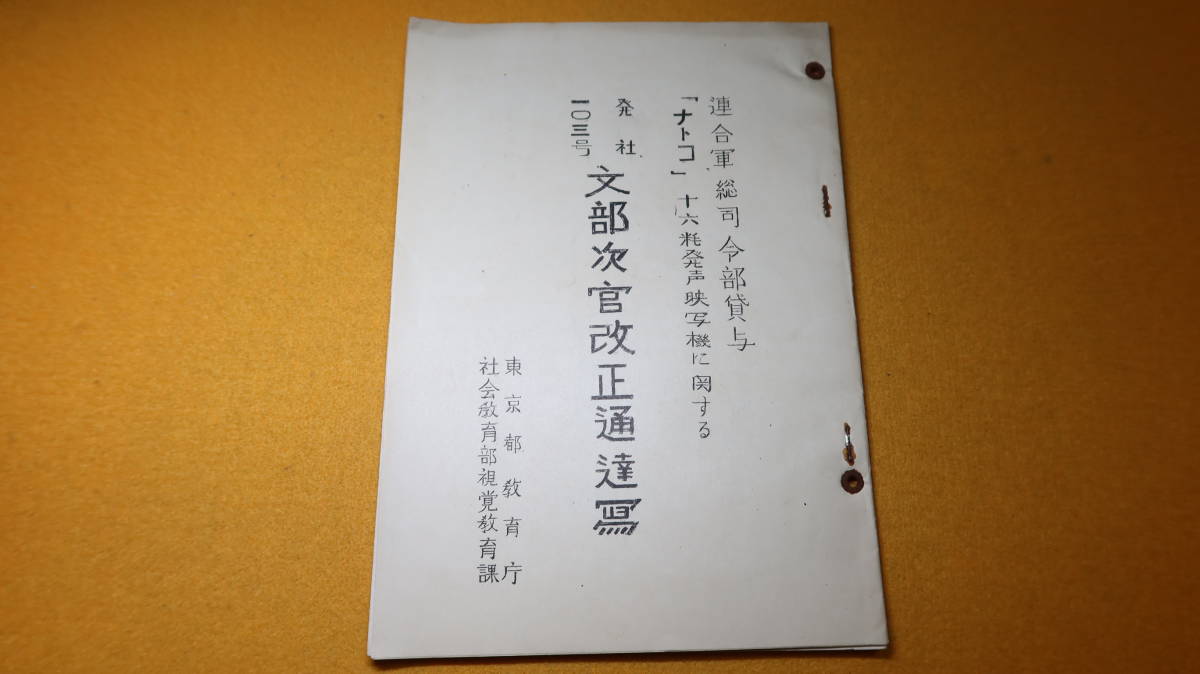 連合軍総司令部貸与
「ナトコ」十六粍発声映写機に関する
発社
一〇三号
文部次官改正通達寫
東京都教育庁
社会教育部視覚教育課